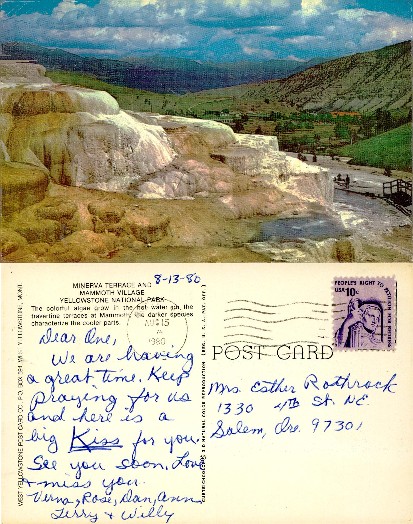 MINERVA TERRACE AND
MAMMOTH VILLAGE
YELLOWSTONE NATIONAL PARK
The colorful algae grow in the hot water on the
travertine terraces at Mammoth, the darker species
characterize the cooler parts.
8-13-80
AUG 15
1980
PEOPLE'S RIGHT TO PETITION FOR REDRESS
USA 10c
POST CARD
Dear One,
We are having
a great time. Keep
praying for us
and here is a
big Kiss for you.
See you soon, Love
& miss you.
Verna, Rose, Dan, Ann,
Terry & Willy
Mrs Esther Rothrock
1330 4th St. NE
Salem, Ore. 97301